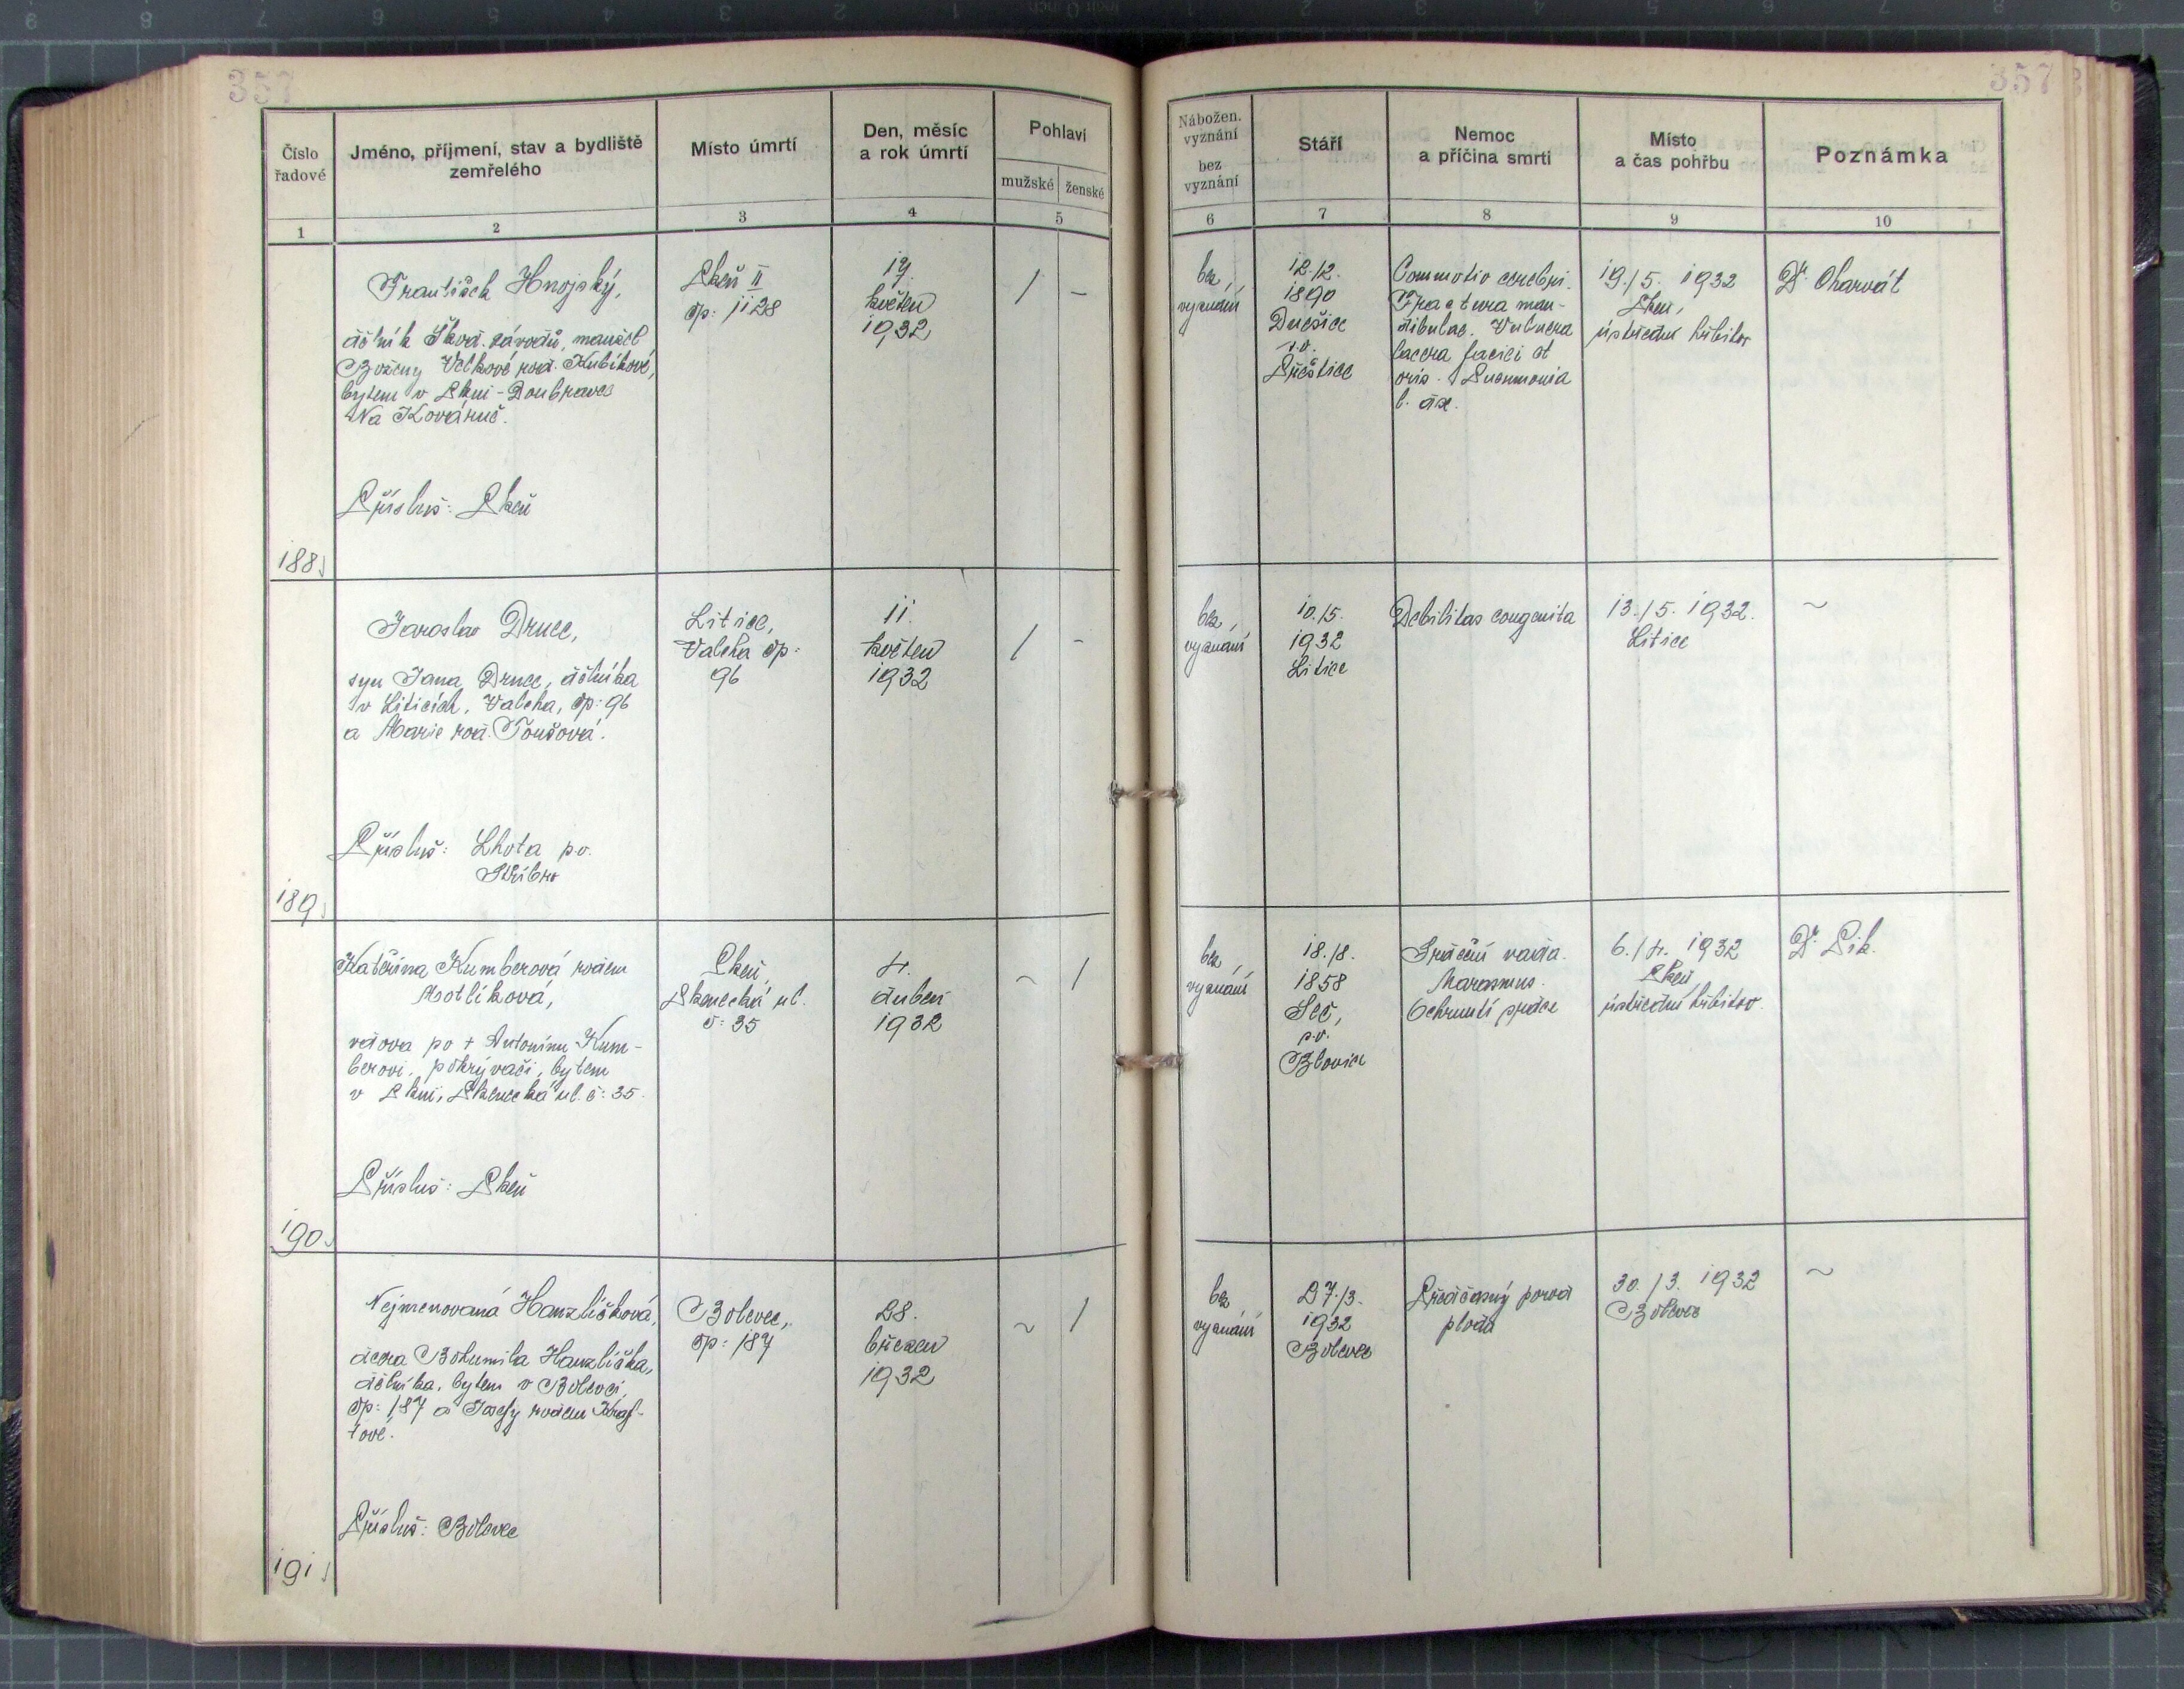 357
357
Číslo
řadové
Jméno, příjmení, stav a bydliště
zemřelého
Místo úmrtí
Den, měsíc
a rok úmrtí
Pohlaví
mužské ženské
Nábožen.
vyznání
bez
vyznání
Stáří
Nemoc
a příčina smrti
Místo
a čas pohřbu
Poznámka
1 2 3 4 5 6 7 8 9 10
188
František Hnojský,
dělník Škod. závodů, manžel
Boženy Velkové roz. Kubíkové,
bytem v Plzni-Doubravce
Na Kovárně.
Přísluš: Plzeň
Plzeň II
čp: 1128
17.
květen
1932
/ -
bez
vyznání
12.12.
1890
Dnešice
p.o.
Přeštice
Commotio cerebri.
Fractura man-
dibulae. Vulnera
lacera faciei et
oris. Pneumonia
l. dx.
19./5. 1932
Plzeň,
ústřední hřbitov
Dr. Charvát
189
Jaroslav Drnec,
syn Jana Drnce, dělníka
v Liticích, Valcha, čp: 96
a Marie roz. Toušová.
Přísluš: Lhota p.o.
Stříbro
Litice,
Valcha čp:
96
11.
květen
1932
/ -
bez
vyznání
10./5.
1932
Litice
Debilitas congenita
13./5. 1932.
Litice
~
190
Kateřina Kumberová rodem
Motlíková,
vdova po + Antonínu Kum-
berovi, pokrývači, bytem
v Plzni, Plzenecká ul. č: 35.
Přísluš: Plzeň
Plzeň,
Plzenecká ul.
č: 35
4.
duben
1932
~ /
bez
vyznání
18./8.
1858
Seč,
p.o.
Blovice
Srdeční vada.
Marasmus.
Ochrnutí srdce
6./4. 1932
Plzeň
ústřední hřbitov.
Dr. Pik.
191
Nejmenovaná Hanzlíčková,
dcera Bohumila Hanzlíčka,
dělníka, bytem v Bolevci,
čp: 187 a Josefy rodem Kraf-
tové.
Přísluš: Bolevec
Bolevec,
čp: 187
28.
březen
1932
~ /
bez
vyznání
27./3.
1932
Bolevec
Předčasný porod
plodu
30./3. 1932
Bolevec
~